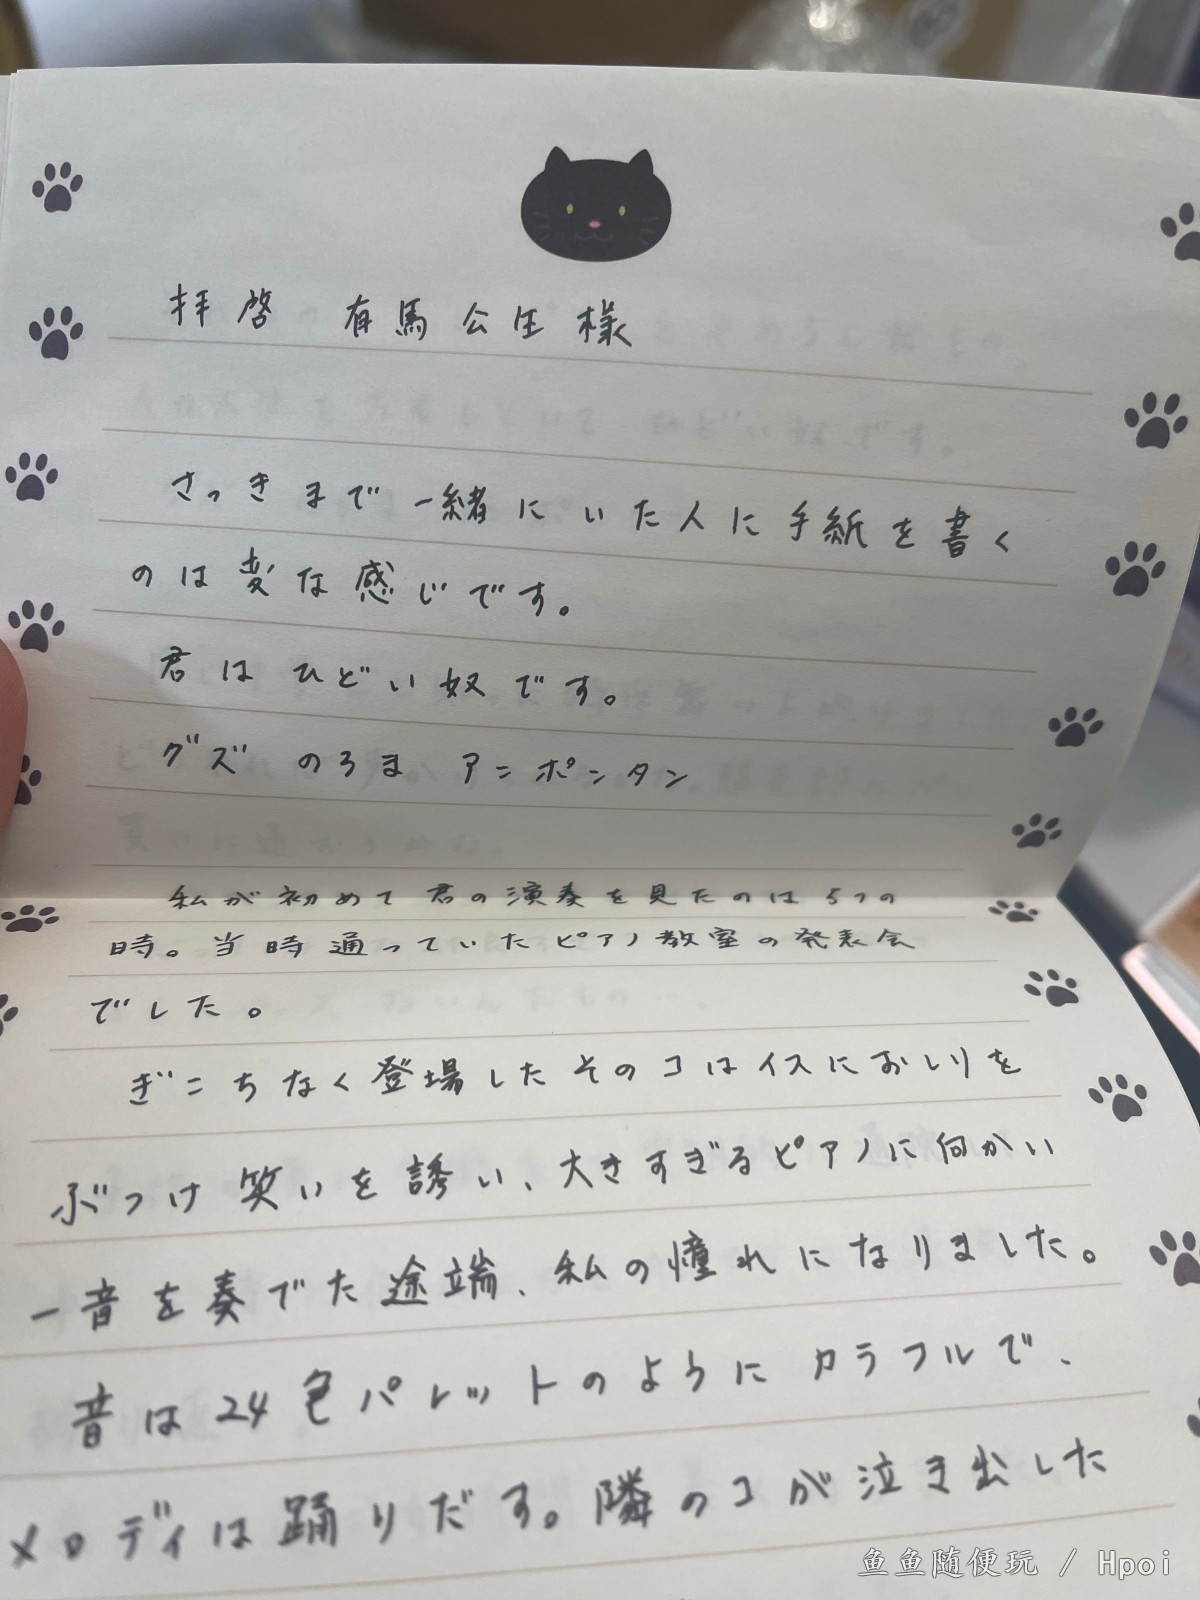 拝啓 有馬公生様
さっきまで一緒にいた人に手紙を書く
のは変な感じです。
君はひどい奴です。
グズ のろま アンポンタン
私が初めて君の演奏を見たのは5つの
時。当時通っていたピアノ教室の発表会
でした。
ぎこちなく登場したそのコはイスにおしりを
ぶつけ笑いを誘い、大きすぎるピアノに向かい
一音を奏でた途端、私の憧れになりました。
音は24色パレットのようにカラフルで、
メロディは踊りだす。隣のコが泣き出した
鱼鱼随便玩 / Hpoi